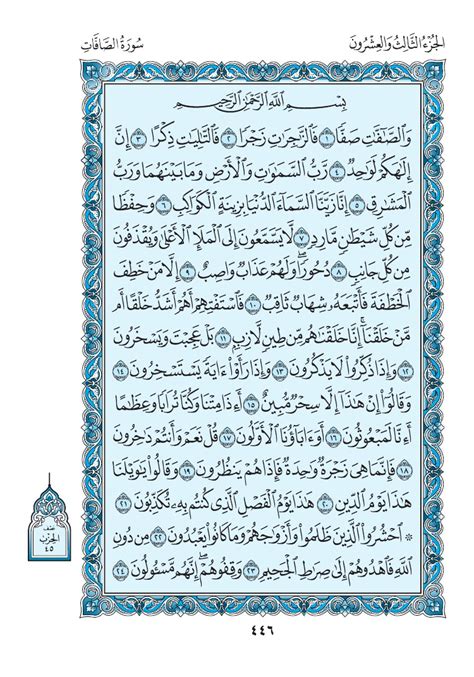 الجُزْءُ الثَّالِثُ وَالعِشْرُونَ
سُورَةُ الصَّافَّاتِ
بِسْمِ اللَّهِ الرَّحْمَٰنِ الرَّحِيمِ
وَالصَّٰفَّٰتِ صَفًّا ١ فَالزَّٰجِرَٰتِ زَجْرًا ٢ فَالتَّٰلِيَٰتِ ذِكْرًا ٣ إِنَّ
إِلَٰهَكُمْ لَوَٰحِدٌ ٤ رَّبُّ السَّمَٰوَٰتِ وَالْأَرْضِ وَمَا بَيْنَهُمَا وَرَبُّ
الْمَشَٰرِقِ ٥ إِنَّا زَيَّنَّا السَّمَاءَ الدُّنْيَا بِزِينَةٍ الْكَوَاكِبِ ٦ وَحِفْظًا
مِّن كُلِّ شَيْطَٰنٍ مَّارِدٍ ٧ لَّا يَسَّمَّعُونَ إِلَى الْمَلَإِ الْأَعْلَىٰ وَيُقْذَفُونَ
مِن كُلِّ جَانِبٍ ٨ دُحُورًا ۖ وَلَهُمْ عَذَابٌ وَاصِبٌ ٩ إِلَّا مَنْ خَطِفَ
الْخَطْفَةَ فَأَتْبَعَهُ شِهَابٌ ثَاقِبٌ ١٠ فَاسْتَفْتِهِمْ أَهُمْ أَشَدُّ خَلْقًا أَم
مَّنْ خَلَقْنَا ۚ إِنَّا خَلَقْنَٰهُم مِّن طِينٍ لَّازِبٍ ١١ بَلْ عَجِبْتَ وَيَسْخَرُونَ
١٢ وَإِذَا ذُكِّرُوا لَا يَذْكُرُونَ ١٣ وَإِذَا رَأَوْا ءَايَةً يَسْتَسْخِرُونَ ١٤
وَقَالُوا إِنْ هَٰذَا إِلَّا سِحْرٌ مُّبِينٌ ١٥ أَءِذَا مِتْنَا وَكُنَّا تُرَابًا وَعِظَٰمًا
أَءِنَّا لَمَبْعُوثُونَ ١٦ أَوَءَابَاؤُنَا الْأَوَّلُونَ ١٧ قُلْ نَعَمْ وَأَنتُمْ دَٰخِرُونَ
١٨ فَإِنَّمَا هِيَ زَجْرَةٌ وَٰحِدَةٌ فَإِذَا هُمْ يَنظُرُونَ ١٩ وَقَالُوا يَٰوَيْلَنَا
هَٰذَا يَوْمُ الدِّينِ ٢٠ هَٰذَا يَوْمُ الْفَصْلِ الَّذِي كُنتُم بِهِ تُكَذِّبُونَ ٢١
۞ احْشُرُوا الَّذِينَ ظَلَمُوا وَأَزْوَٰجَهُمْ وَمَا كَانُوا يَعْبُدُونَ ٢٢ مِن دُونِ
اللَّهِ فَاهْدُوهُمْ إِلَىٰ صِرَٰطِ الْجَحِيمِ ٢٣ وَقِفُوهُمْ ۖ إِنَّهُم مَّسْـُٔولُونَ ٢٤
نصف
الحزب
٤٥
٤٤٦